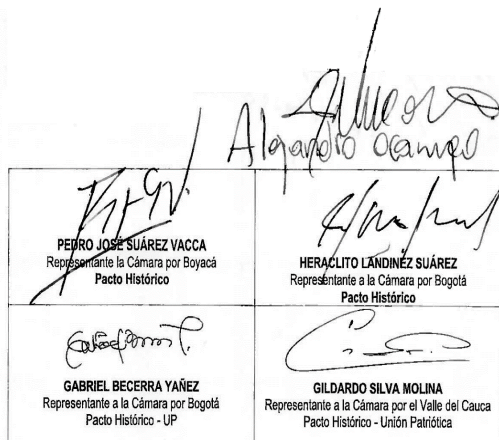 Alejandro Ocampo
PEDRO JOSÉ SUÁREZ VACCA
Representante la Cámara por Boyacá
Pacto Histórico
HERACLITO LANDINEZ SUÁREZ
Representante a la Cámara por Bogotá
Pacto Histórico
GABRIEL BECERRA YAÑEZ
Representante a la Cámara por Bogotá
Pacto Histórico - UP
GILDARDO SILVA MOLINA
Representante a la Cámara por el Valle del Cauca
Pacto Histórico - Unión Patriótica